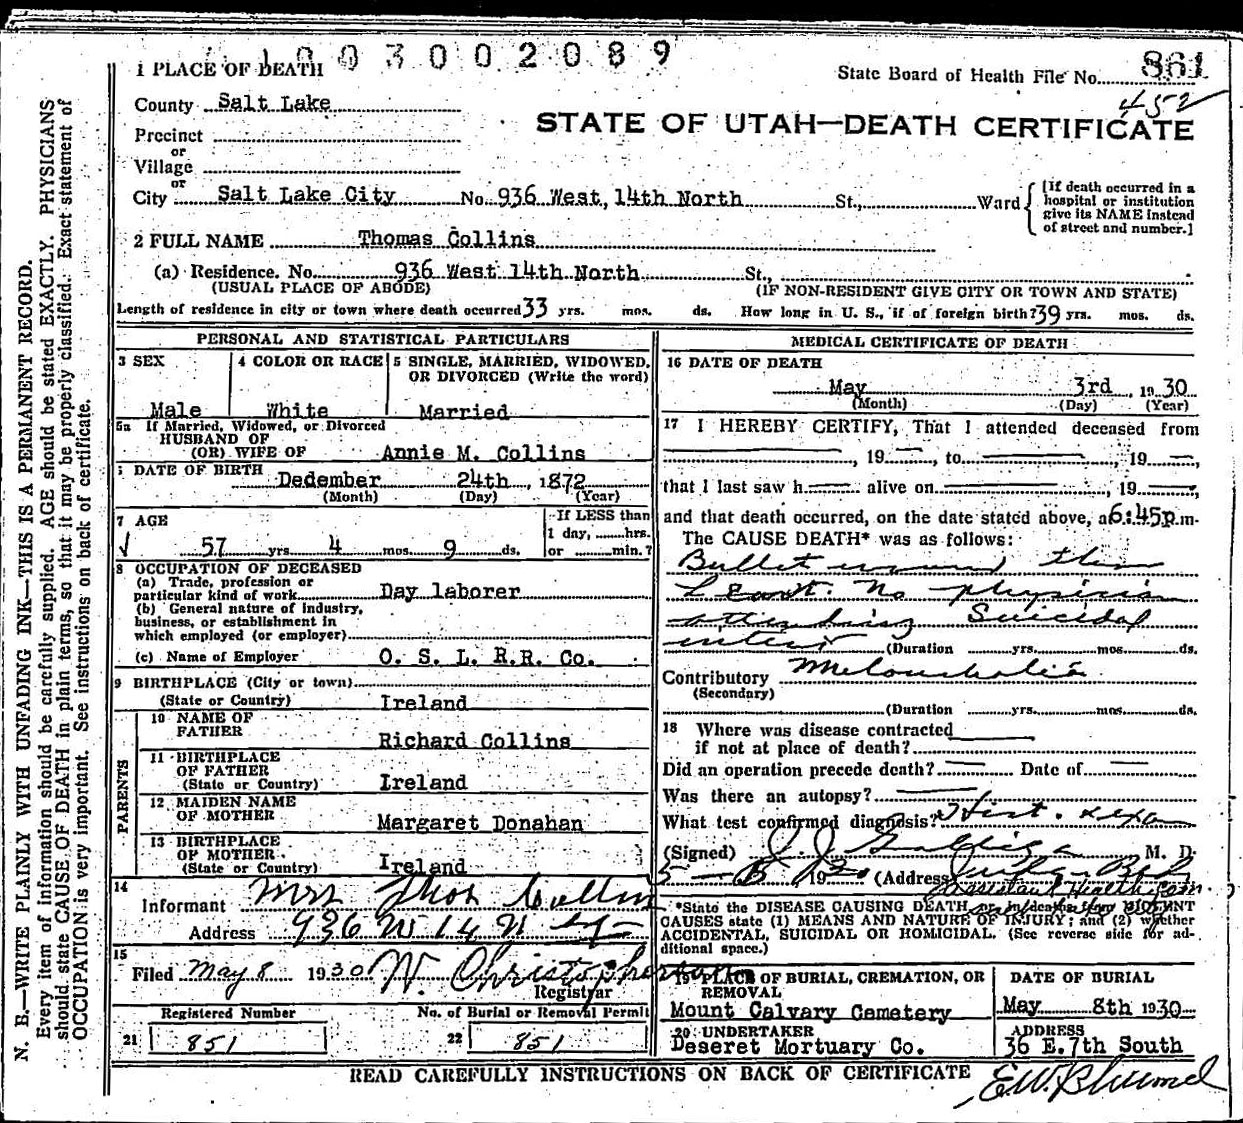 1003002089
1 PLACE OF DEATH
State Board of Health File No. 861
452
County Salt Lake
STATE OF UTAH—DEATH CERTIFICATE
Precinct
or
Village
or
City Salt Lake City No. 936 West, 14th North St., Ward
[If death occurred in a
hospital or institution
give its NAME instead
of street and number.]
2 FULL NAME Thomas Collins
(a) Residence. No. 936 West 14th North St.,
(USUAL PLACE OF ABODE) (IF NON-RESIDENT GIVE CITY OR TOWN AND STATE)
Length of residence in city or town where death occurred 33 yrs. mos. ds. How long in U. S., if of foreign birth? 39 yrs. mos. ds.
PERSONAL AND STATISTICAL PARTICULARS
3 SEX
Male
4 COLOR OR RACE
White
5 SINGLE, MARRIED, WIDOWED,
OR DIVORCED (Write the word)
Married
5a If Married, Widowed, or Divorced
HUSBAND OF
(OR) WIFE OF Annie M. Collins
DATE OF BIRTH
Dedember 24th, 1872
(Month) (Day) (Year)
7 AGE
57 yrs. 4 mos. 9 ds.
If LESS than
1 day, hrs.
or min.?
8 OCCUPATION OF DECEASED
(a) Trade, profession or
particular kind of work Day laborer
(b) General nature of industry,
business, or establishment in
which employed (or employer)
(c) Name of Employer O. S. L. R.R. Co.
9 BIRTHPLACE (City or town)
(State or Country) Ireland
PARENTS
10 NAME OF
FATHER Richard Collins
11 BIRTHPLACE
OF FATHER
(State or Country) Ireland
12 MAIDEN NAME
OF MOTHER Margaret Donahan
13 BIRTHPLACE
OF MOTHER
(State or Country) Ireland
14
Informant Mrs Thos Collins
Address 936 W 14 N
15
Filed May 8 1930 W. Christopherson
Registrar
Registered Number No. of Burial or Removal Permit
21 851 22 851
MEDICAL CERTIFICATE OF DEATH
16 DATE OF DEATH
May 3rd, 1930
(Month) (Day) (Year)
17 I HEREBY CERTIFY, That I attended deceased from
, 19 , to , 19 ,
that I last saw h alive on , 19 ,
and that death occurred, on the date stated above, at 6:45p.m.
The CAUSE DEATH* was as follows:
Bullet wound thru
heart. No physician
attending Suicidal
intent (Duration yrs. mos. ds.
Contributory Melancholia
(Secondary)
(Duration yrs. mos. ds.
18 Where was disease contracted
if not at place of death?
Did an operation precede death? Date of
Was there an autopsy?
What test confirmed diagnosis? Hist. & exam
(Signed) J. J. M. D.
5-5 1930 (Address
Assistant Health Com.
*State the DISEASE CAUSING DEATH, or in deaths from VIOLENT
CAUSES state (1) MEANS AND NATURE OF INJURY; and (2) whether
ACCIDENTAL, SUICIDAL OR HOMICIDAL. (See reverse side for ad-
ditional space.)
19 PLACE OF BURIAL, CREMATION, OR
REMOVAL
Mount Calvary Cemetery
DATE OF BURIAL
May 8th 1930
20 UNDERTAKER
Deseret Mortuary Co.
ADDRESS
36 E. 7th South
READ CAREFULLY INSTRUCTIONS ON BACK OF CERTIFICATE
N. B.—WRITE PLAINLY WITH UNFADING INK—THIS IS A PERMANENT RECORD.
Every item of information should be carefully supplied. AGE should be stated EXACTLY. PHYSICIANS
should state CAUSE OF DEATH in plain terms, so that it may be properly classified. Exact statement of
OCCUPATION is very important. See instructions on back of certificate.